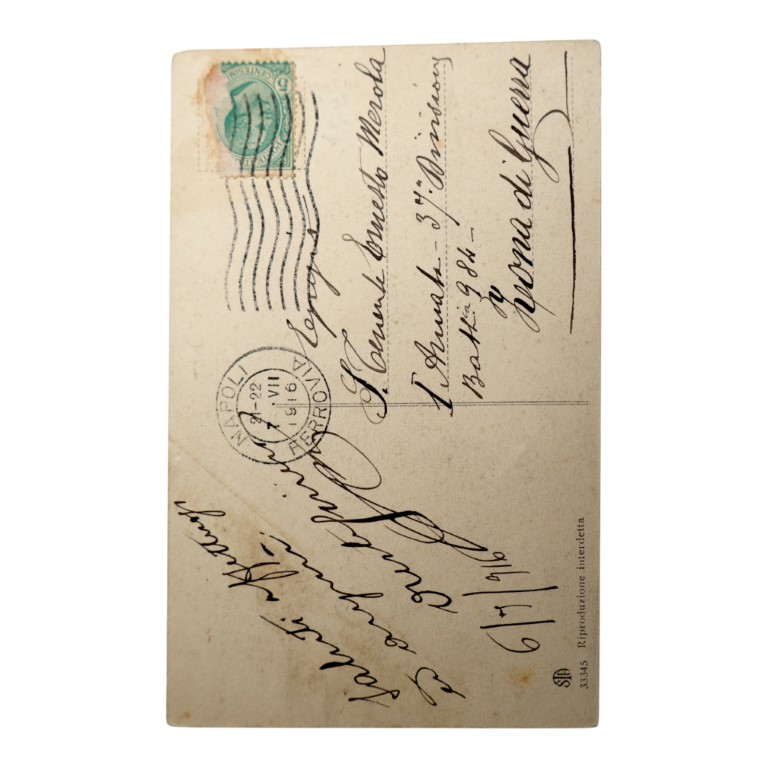 Saluti affettuosi
e auguri
6/7/916
33345 Riproduzione interdetta
NAPOLI
21-22
7 VII
1916
FERROVIA
CENTESIMI
5
S. Tenente Ernesto Merola
1ª Armata - 37ª Divisione
Batt.ia 984 -
Zona di Guerra